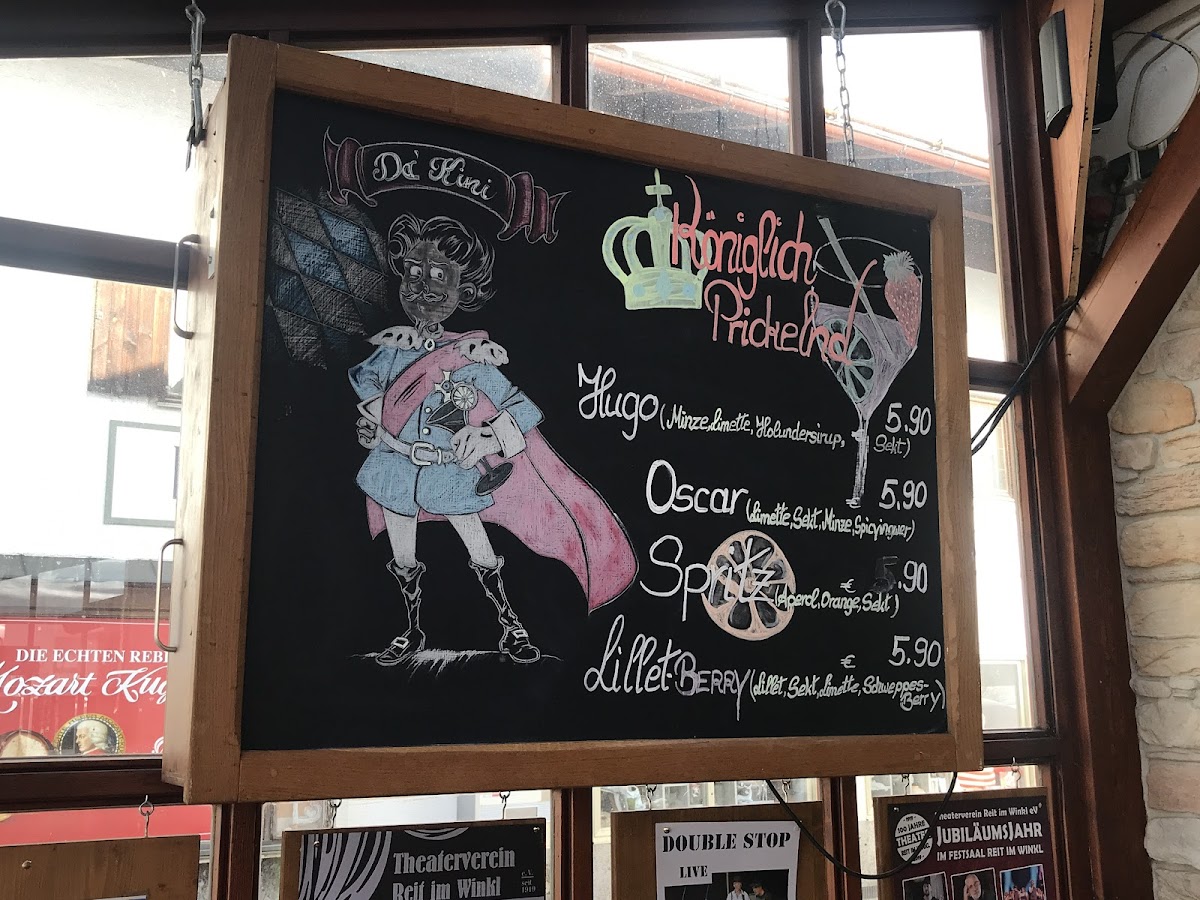 Da' Kini
Königlich
Prickelnd
Hugo (Minze, Limette, Holundersirup, Sekt) 5.90
Oscar (Limette, Sekt, Minze, Spicyingwer) 5.90
Spritz (Aperol, Orange, Sekt) € 5.90
Lillet-BERRY (Lillet, Sekt, Limette, Schweppes-Berry) € 5.90
DIE ECHTEN REBE
Mozart Kug
Theaterverein
Reit im Winkl
e.V.
seit
1919
DOUBLE STOP
LIVE
100 JAHRE
THEATER
REIT IM WINKL
Theaterverein Reit im Winkl eV
JUBILÄUMSJAHR
IM FESTSAAL REIT IM WINKL